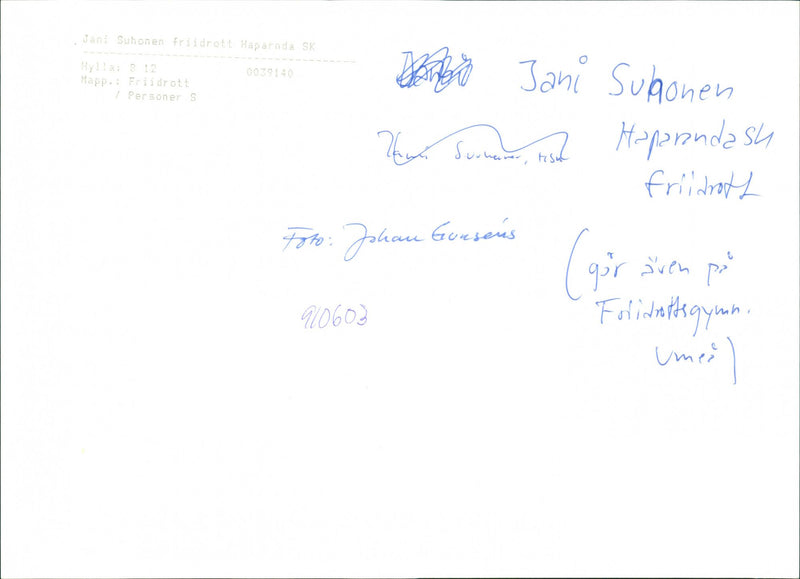 Jani Suhonen friidrott Haparnda SK
Hylla: B 12 0039140
Mapp.: Friidrott
/ Personer S
Jani Suhonen
Haparanda SK
friidrott
Foto: Johan
(går även på
Friidrottsgymn.
Umeå)
910603